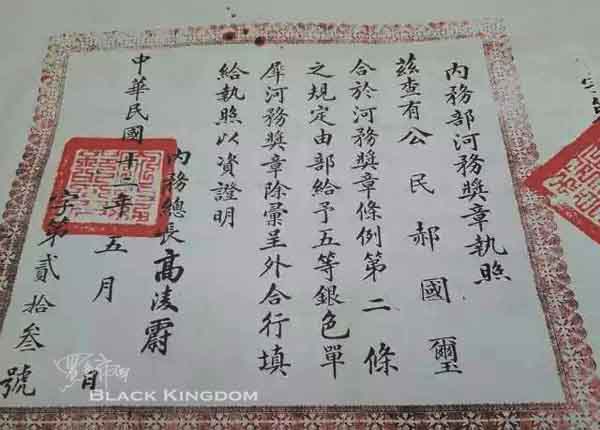 內務部河務奬章執照
茲查有公民郝國璽
合於河務奬章條例第二條
之規定由部給予五等銀色單
犀河務奬章除彙呈外合行填
給執照以資證明
內務總長高凌霨
中華民國十二年五月 日
字第貳拾叁號
BLACK KINGDOM